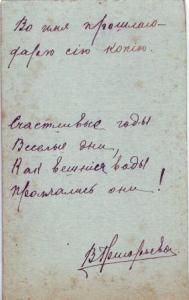 Во имя прошлаго
дарю сію копію.
Счастливые годы
Веселые дни,
Какъ вешнія воды
Промчались они!
В Григорьевъ